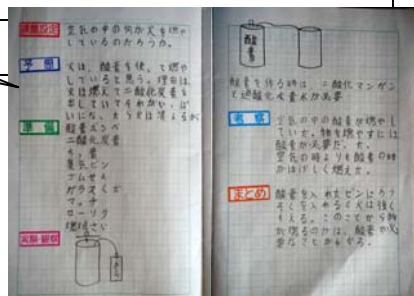 課題設定
空気の中の何が火を燃や
しているのだろうか。
予想
火は、酸素を使って燃や
していると思う。理由は、
火は燃えて二酸化炭素を
出していてそれがいっぱ
いになったら火は消えるから
準備
酸素ボンベ
二酸化炭素
ちっ素
集気ビン
ゴムせん
ガラスくだ
マッチ
ローソク
燃焼さじ
実験・観察
酸素
酸素を作る時は、二酸化マンガン
と過酸化水素水が必要
考察
空気の中の酸素が燃やし
ていた。物を燃やすには
酸素が必要だった。
空気の時よりも酸素の時
がはげしく燃えた。
まとめ
酸素を入れたビンにろう
そくを入れると火は強く
もえる。このことから物
が燃るのには、酸素が必
要なことがわかる。